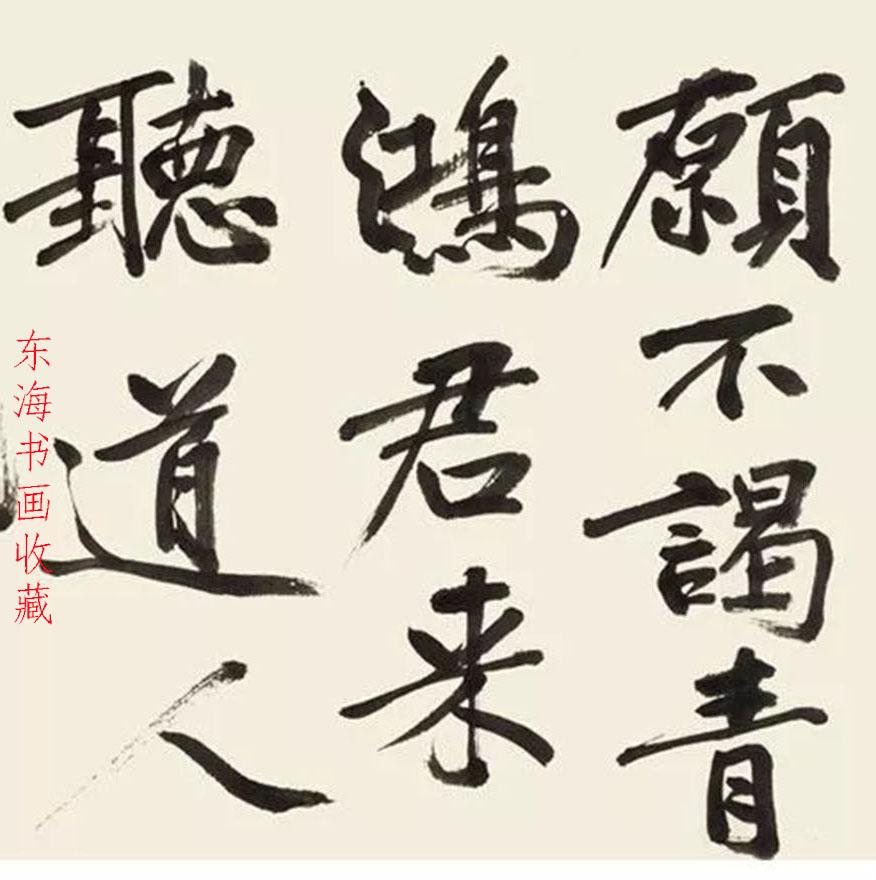 願不謁青
鴻君来
聽道人
东海书画收藏